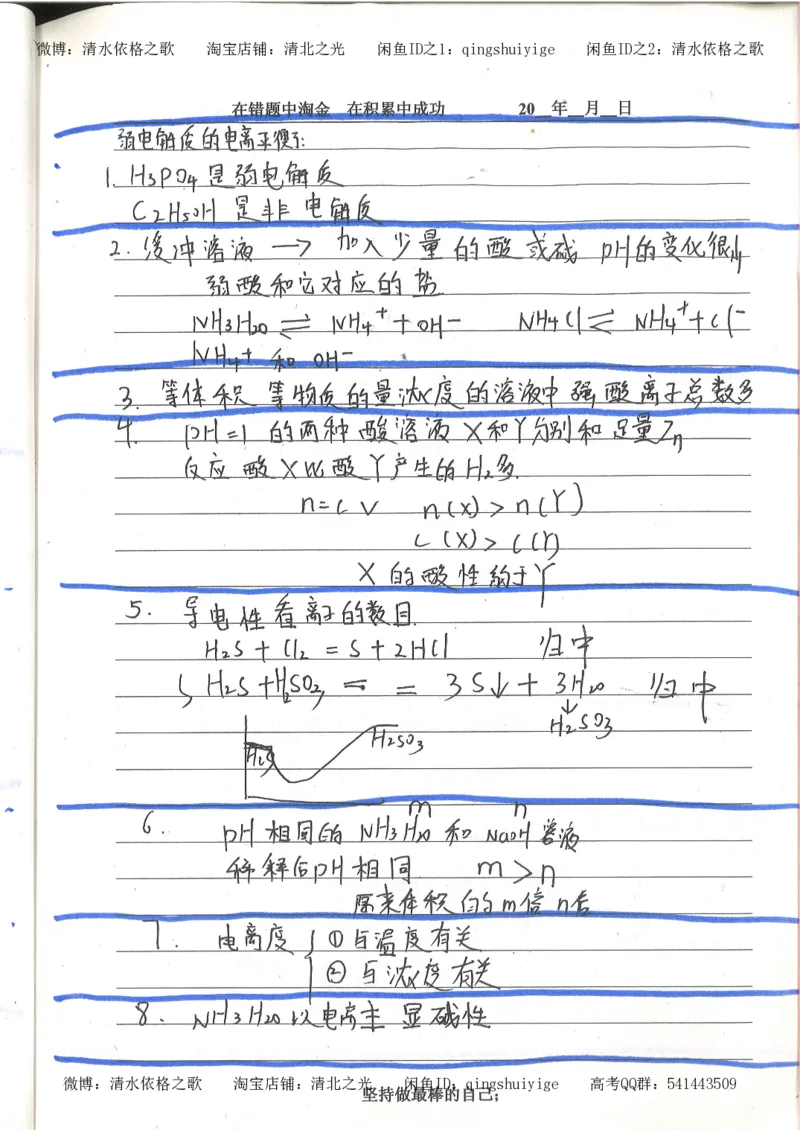 微博：清水依格之歌 淘宝店铺：清北之光 闲鱼ID之1：qingshuiyige 闲鱼ID之2：清水依格之歌
在错题中淘金 在积累中成功 20__年__月__日
弱电解质的电离平衡:
1. H3PO4 是弱电解质
C2H5OH 是非电解质
2. 缓冲溶液 → 加入少量的酸或碱 pH的变化很小
弱酸和它对应的盐
NH3H2O ⇌ NH4⁺ + OH⁻ NH4Cl ⇌ NH4⁺ + Cl⁻
NH4⁺ 和 OH⁻
3. 等体积 等物质的量浓度的溶液中 强酸离子总数多
4. pH=1 的两种酸溶液 X和Y分别和足量Zn
反应 酸X比酸Y产生的H2多
n=cV n(X)>n(Y)
c(X)>c(Y)
X的酸性弱于Y
5. 导电性看离子的数目
H2S + Cl2 = S + 2HCl 归中
H2S + H2SO3 = = 3S↓ + 3H2O 归中
↓
H2SO3
H2S
H2SO3
m n
6. pH相同的 NH3H2O 和 NaOH 溶液
稀释后pH相同 m>n
原来体积的 m倍 n倍
7. 电离度 { ①与温度有关
②与浓度有关
8. NH3H2O 以电离主 显碱性
微博：清水依格之歌 淘宝店铺：清北之光 闲鱼ID：qingshuiyige 高考QQ群：541443509
坚持做最棒的自己；